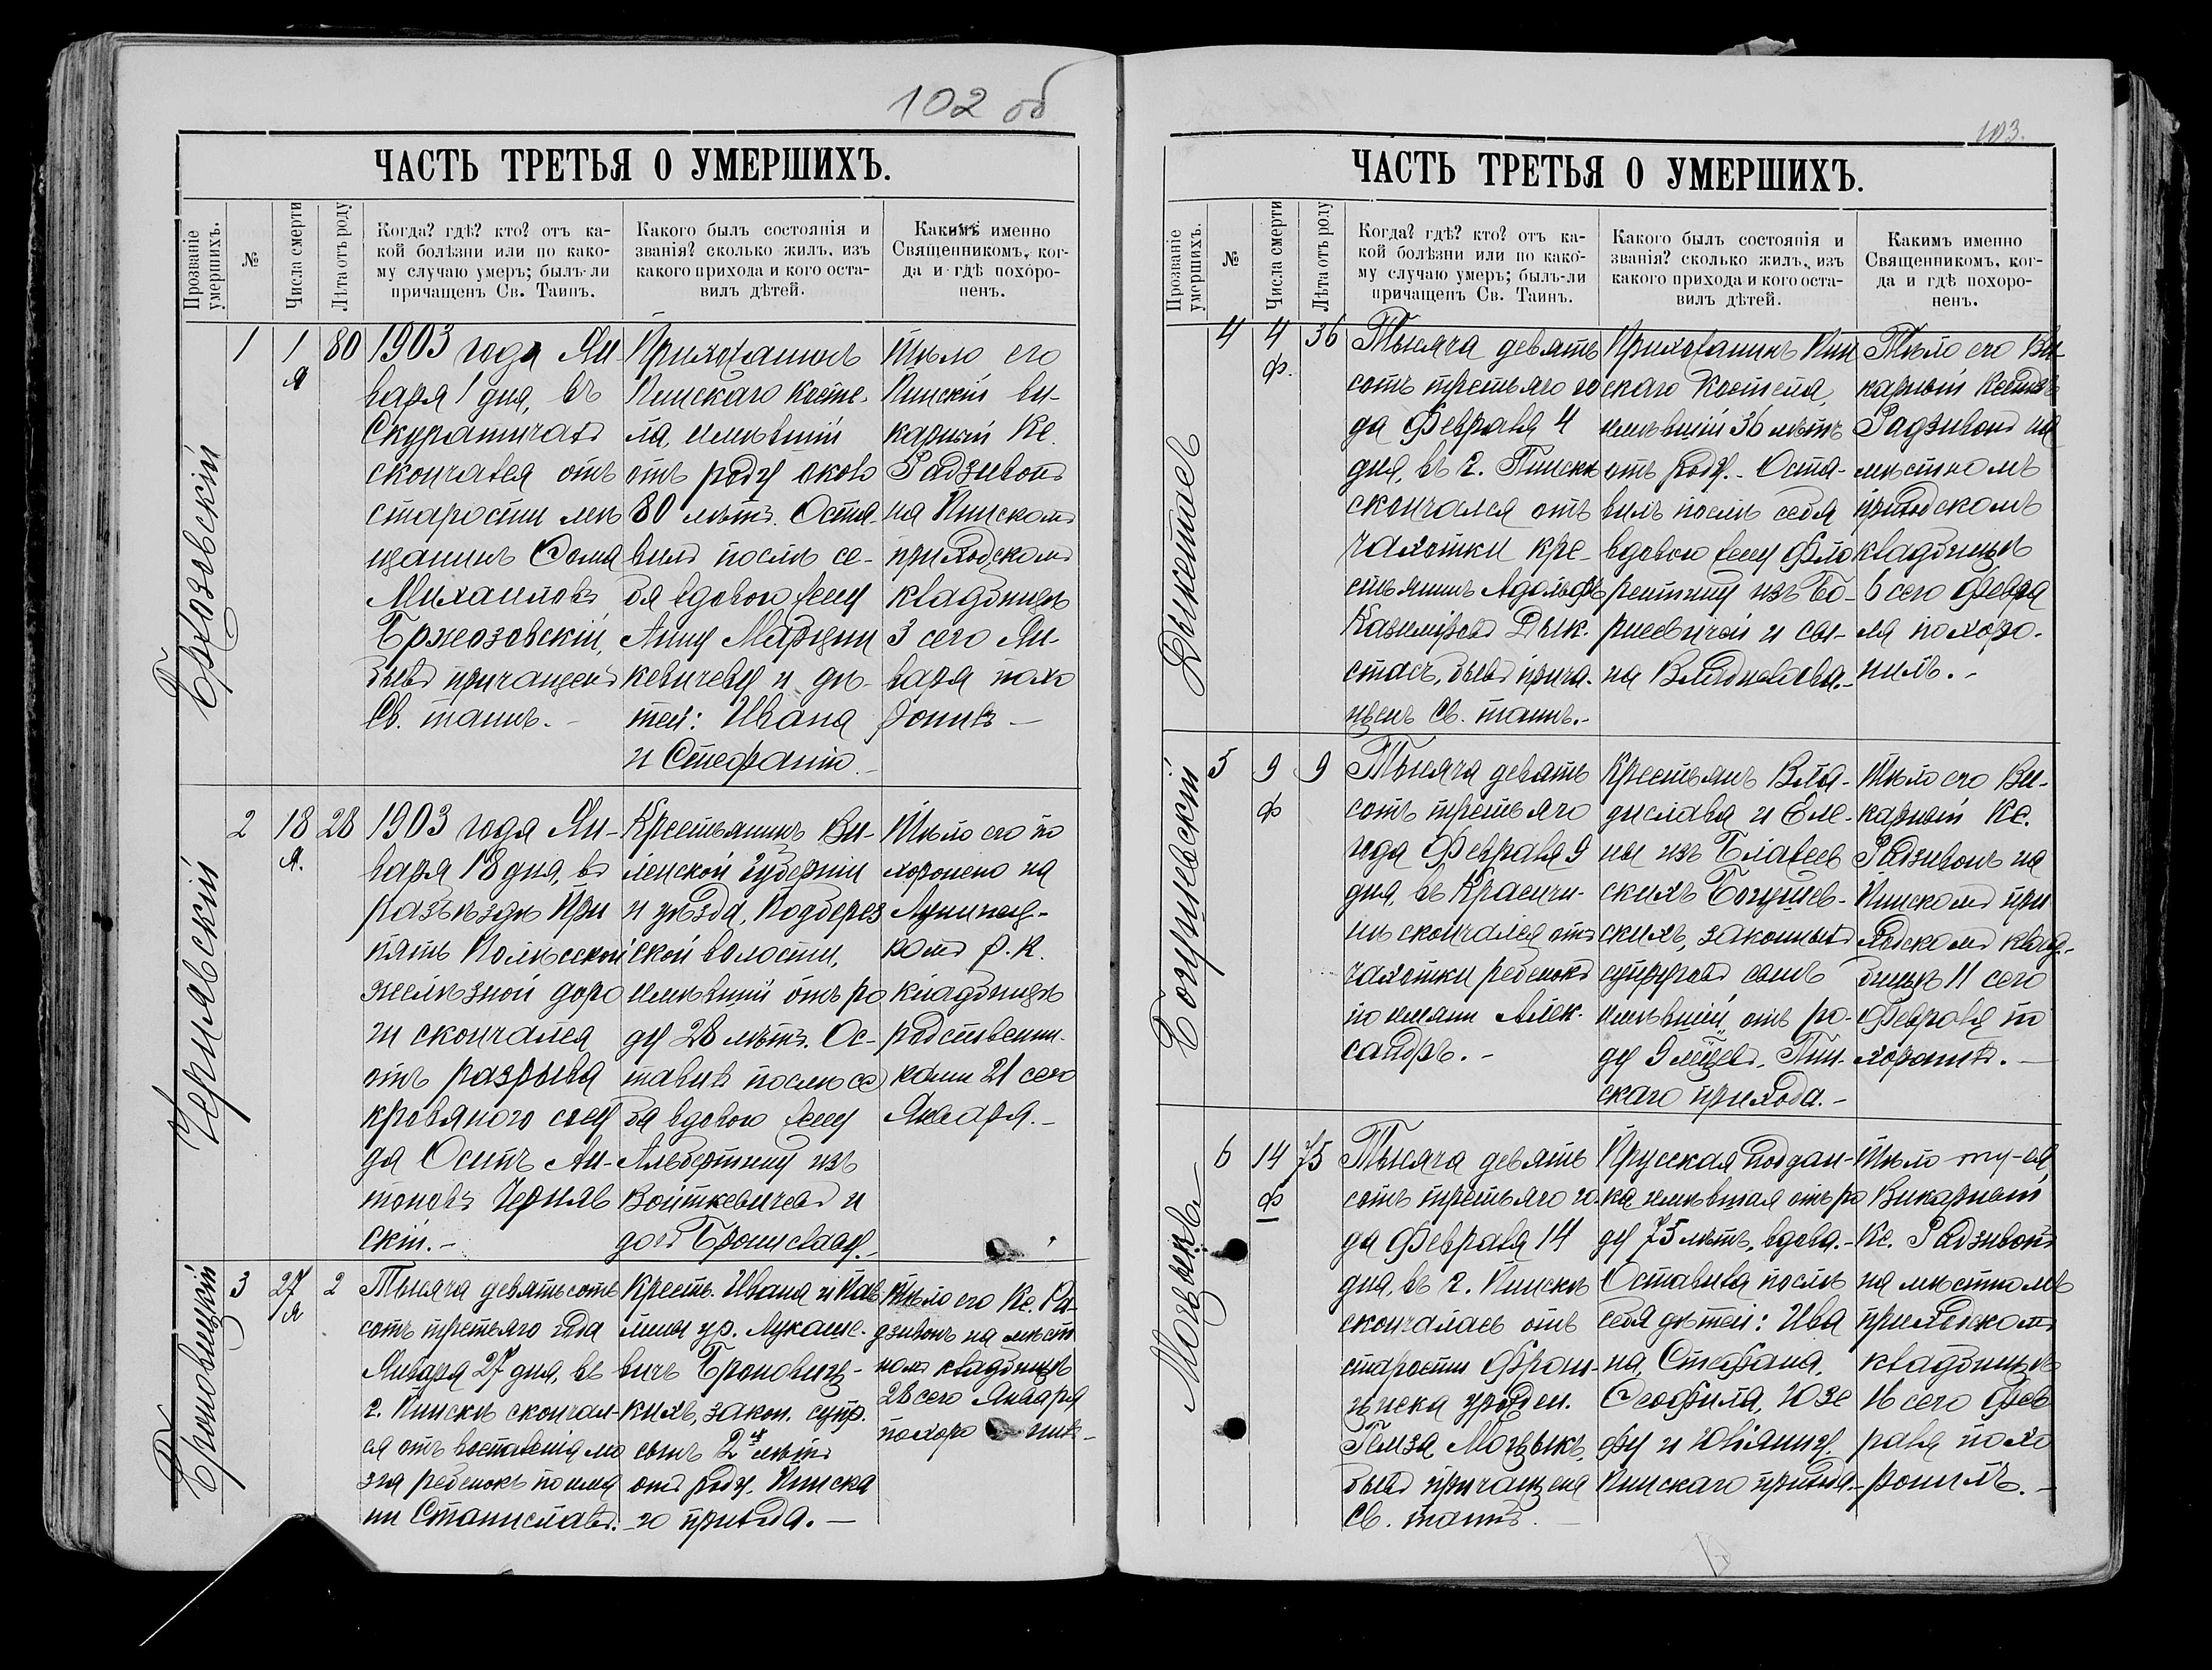 102 об
ЧАСТЬ ТРЕТЬЯ О УМЕРШИХЪ.
Прозваніе умершихъ.
№
Числа смерти
Лѣта отъ роду
Когда? гдѣ? кто? отъ ка-
кой болѣзни или по како-
му случаю умеръ; былъ-ли
причащенъ Св. Таинъ.
Какого былъ состоянія и
званія? сколько жилъ, изъ
какого прихода и кого оста-
вилъ дѣтей.
Какимъ именно
Священникомъ, ког-
да и гдѣ похоро-
ненъ.
1
1
Я
80
1903 года Ян-
варя 1 дня, въ
скончался отъ
старости мѣ
щанинъ Ѳома
Михаиловъ
Бржозовскій,
бывъ причащенъ
Св. таинъ.-
Прихожанинъ
Пинскаго косте-
ла, имѣвшій
отъ роду около
80 лѣтъ. Оста-
вилъ послѣ се-
бя вдовою жену
Анну
кевичеву и дѣ-
тей: Ивана
и Стефанію.-
Тѣло его
Пинскій ви-
карный Кс.
Радзивонъ
на Пинскомъ
приходскомъ
кладбищѣ
3 сего Ян-
варя похо
ронилъ-
2
18
Я.
28
Чернявскій
1903 года Ян-
варя 18 дня, въ
разъѣздѣ При
пять Полѣсской
желѣзной доро
ги скончался
отъ разрыва
кровяного сосу
да Осипъ Ан-
тоновъ Черняв
скій.-
Крестьянинъ Ви-
ленской губерніи
и уѣзда, Подберез
ской волости,
имѣвшій отъ ро
ду 28 лѣтъ. Ос-
тавилъ послѣ се
бя вдовою жену
Альбертину изъ
Войткевичевъ и
дочь Брониславу.-
Тѣло его по
хоронено на
Лунинец-
комъ р. к.
кладбищѣ
родственни-
ками 21 сего
Января.-
3
27
Я
2
Броновицкій
Тысяча девятьсотъ
сотъ третьяго года
Января 27 дня, въ
г. Пинскѣ скончал-
ся отъ воспаленія мо
зга ребенокъ по име
ни Станиславъ.
Кресть. Ивана и Пав
лины ур. Лукаше-
вичъ Броновиц-
кихъ, закон. супр.
сынъ 2ухъ лѣтъ
отъ роду, Пинска
го прихода.-
Тѣло его Кс. Ра-
дзивонъ на мѣст
номъ кладбищѣ
28 сего Января
похоро нилъ-
103.
ЧАСТЬ ТРЕТЬЯ О УМЕРШИХЪ.
Прозваніе умершихъ.
№
Числа смерти
Лѣта отъ роду
Когда? гдѣ? кто? отъ ка-
кой болѣзни или по како-
му случаю умеръ; былъ-ли
причащенъ Св. Таинъ.
Какого былъ состоянія и
званія? сколько жилъ, изъ
какого прихода и кого оста-
вилъ дѣтей.
Какимъ именно
Священникомъ, ког-
да и гдѣ похоро-
ненъ.
4
4
Ф.
36
Тысяча девять
сотъ третьяго го
да Февраля 4
дня, въ г. Пинскѣ
скончался отъ
чахотки кре-
стьянинъ Адольфъ
Казиміровъ Дык-
стасъ, бывъ прича-
щенъ Св. таинъ.-
Прихожанинъ Пин
скаго костела,
имѣвшій 36 лѣтъ
отъ роду.- Оста-
вилъ послѣ себя
вдовою жену Фло
рентину изъ Бо-
и сы-
на Владислава.-
Тѣло его Ви-
карный Ксендзъ
Радзивонъ на
мѣстномъ
приходскомъ
кладбищѣ
6 сего Февра
ля похоро-
нилъ.-
5
9
Ф
9
Богушевскій
Тысяча девять
сотъ третьяго
года Февраля 9
дня, въ
скончался отъ
чахотки ребенокъ
по имени Алек-
сандръ.-
Крестьянъ Вла-
дислава и Еле-
ны изъ
скихъ Богушев-
скихъ, законныхъ
супруговъ сынъ
имѣвшій отъ ро-
ду 9 Пин-
скаго прихода.-
Тѣло его Ви-
карный Кс.
Радзивонъ на
Пинскомъ при
ходскомъ клад-
бищѣ 11 сего
Февраля по
хоронилъ.-
6
14
Ф
75
Тысяча девять
сотъ третьяго го-
да Февраля 14
дня, въ г. Пинскѣ
скончалась отъ
старости Фран-
циска урожден.
бывъ причащена
Св. таинъ.
Прусская поддан-
ка имѣвшая отъ ро
ду 75 лѣтъ, вдова.-
Оставила послѣ
себя дѣтей: Ива
на, Стефана,
Ѳеофила, Юзе
фу и Юліанну.
Пинскаго прихода.-
Тѣло ея
Викарный
Кс. Радзивонъ
на мѣстномъ
приходскомъ
кладбищѣ
16 сего Фев
раля похо
ронилъ.-